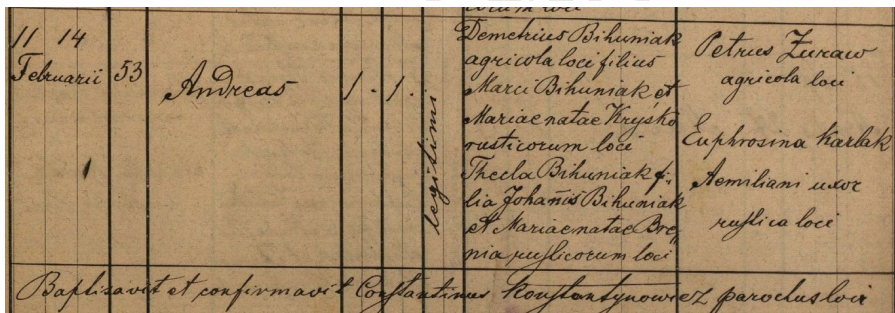 orum loci
11 14
Februarii 53
Andreas
1. 1.
legitimi
Demetrius Bihuniak
agricola loci filius
Marci Bihuniak et
Mariae natae Kryśko
rusticorum loci
Thecla Bihuniak fi-
lia Johan̄is Bihuniak
et Mariae natae Bre-
nia rusticorum loci
Petrus Żuraw
agricola loci
Euphrosina Karlak
Aemiliani uxor
rustica loci
Baptisavit et confirmavit Constantinus Konstantynowicz parochus loci